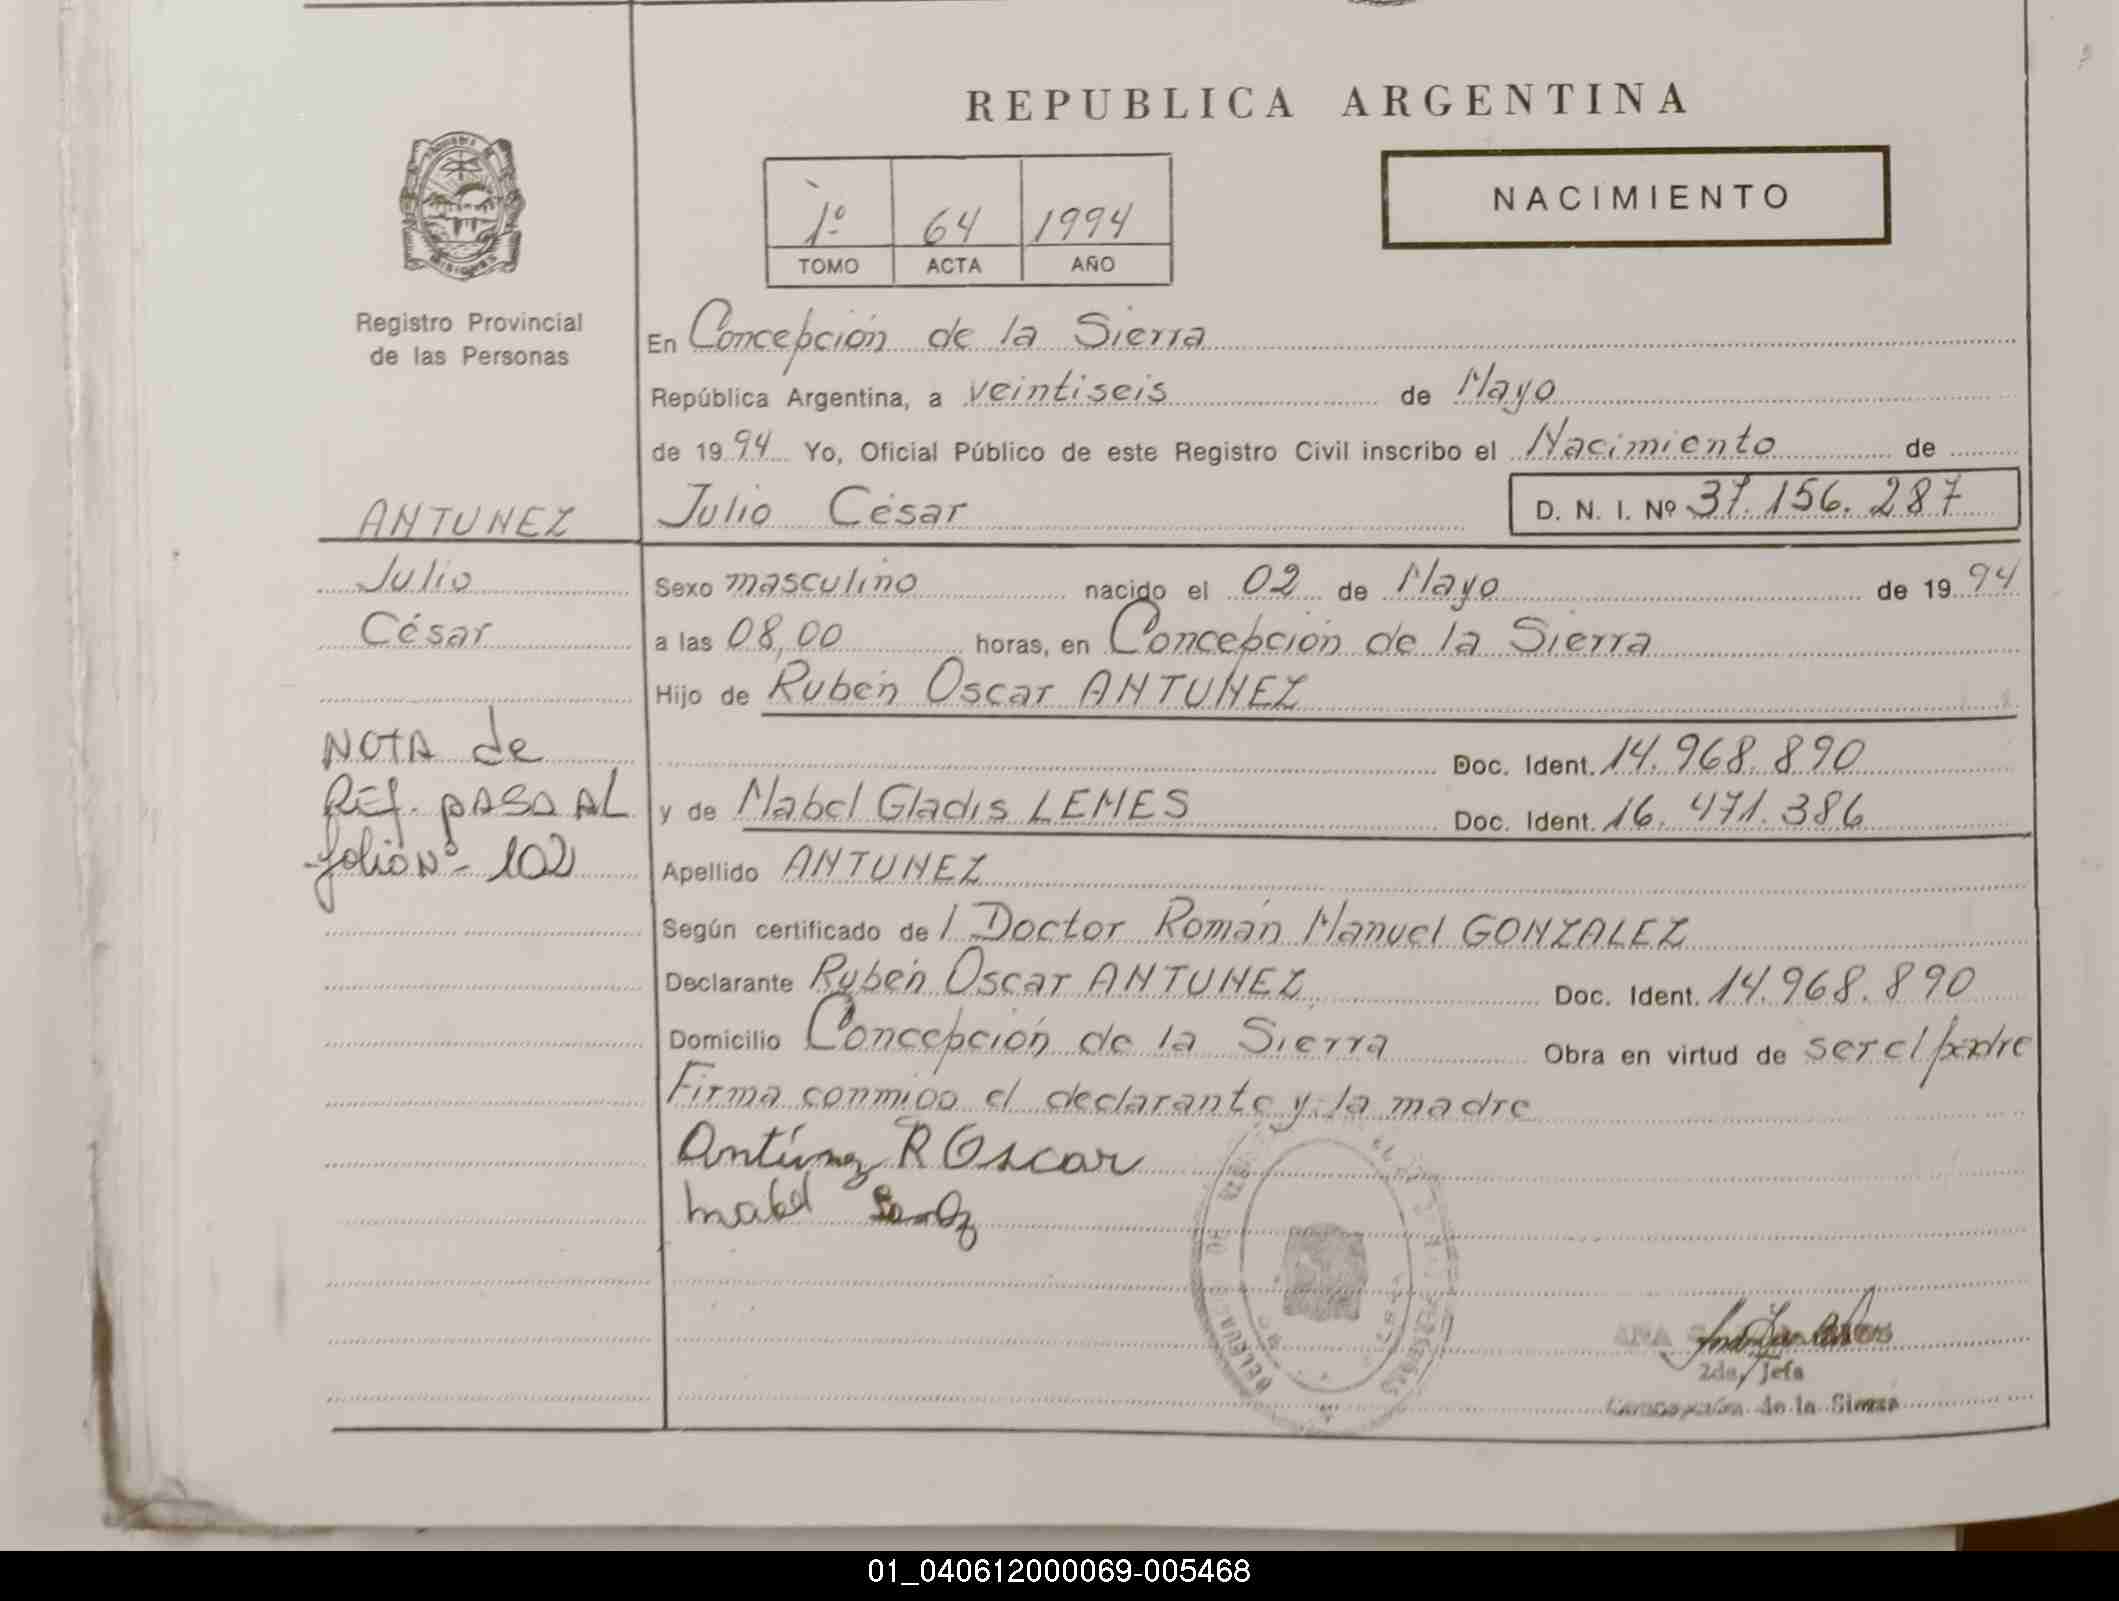 REPUBLICA ARGENTINA
1º 64 1994
TOMO ACTA AÑO
NACIMIENTO
MISIONES
Registro Provincial
de las Personas
En Concepción de la Sierra
República Argentina, a veintiseis de Mayo
de 1994 Yo, Oficial Público de este Registro Civil inscribo el Nacimiento de
ANTUNEZ
Julio César D. N. I. Nº 37.156.287
Julio
César
Sexo masculino nacido el 02 de Mayo de 1994
a las 08,00 horas, en Concepción de la Sierra
Hijo de Rubén Oscar ANTUNEZ
Doc. Ident. 14.968.890
y de Mabel Gladis LEMES Doc. Ident. 16.471.386
NOTA de
Ref. pASA AL
folio Nº- 102
Apellido ANTUNEZ
Según certificado del Doctor Román Manuel GONZALEZ
Declarante Rubén Oscar ANTUNEZ Doc. Ident. 14.968.890
Domicilio Concepción de la Sierra Obra en virtud de ser el padre
Firma conmigo el declarante y la madre
Antúnez R Oscar
Mabel
ANA
2da. Jefa
Concepción de la Sierra
01_040612000069-005468